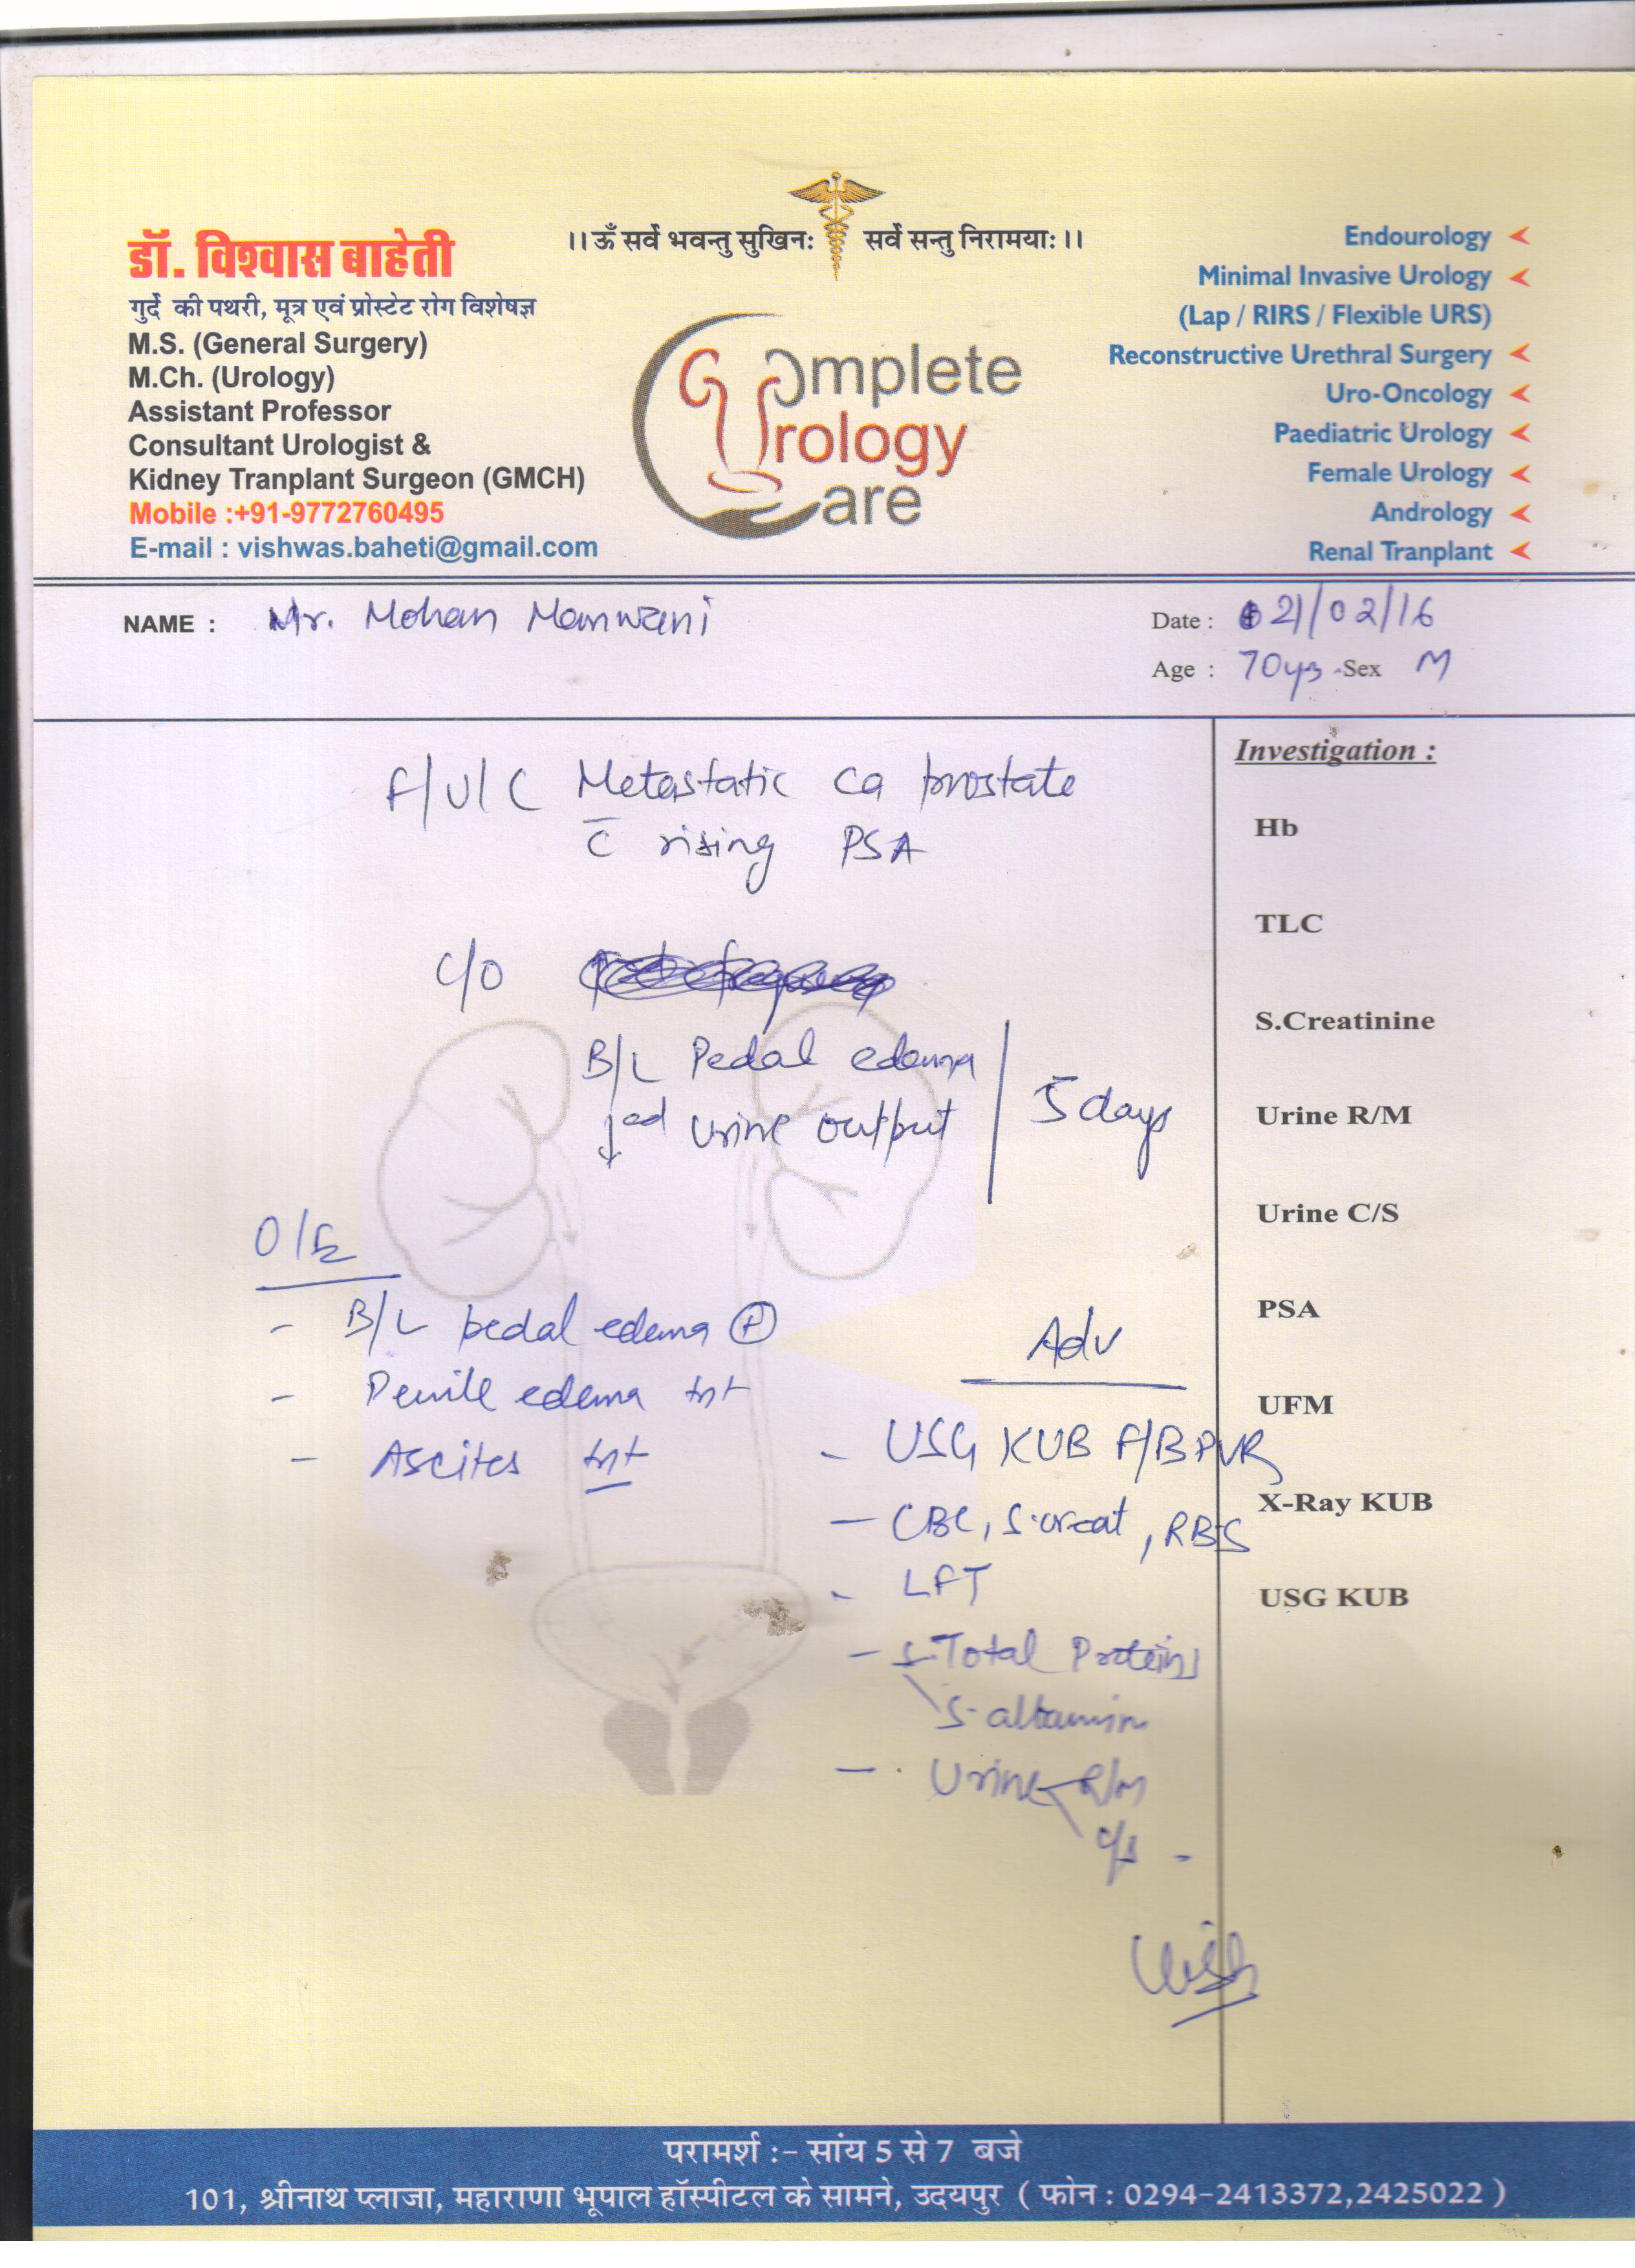 डॉ. विश्वास बाहेती
गुर्दे की पथरी, मूत्र एवं प्रोस्टेट रोग विशेषज्ञ
M.S. (General Surgery)
M.Ch. (Urology)
Assistant Professor
Consultant Urologist &
Kidney Tranplant Surgeon (GMCH)
Mobile :+91-9772760495
E-mail : vishwas.baheti@gmail.com
।। ॐ सर्वे भवन्तु सुखिनः सर्वे सन्तु निरामयाः ।।
Complete
Urology
Care
Endourology
Minimal Invasive Urology
(Lap / RIRS / Flexible URS)
Reconstructive Urethral Surgery
Uro-Oncology
Paediatric Urology
Female Urology
Andrology
Renal Tranplant
NAME : Mr. Mohan Manwani
Date : 21/02/16
Age : 70yrs Sex M
F/U/C Metastatic Ca prostate
c̄ rising PSA
C/O
B/L Pedal edema
↓ed urine output
5 days
O/E
- B/L pedal edema ⊕
- Penile edema +nt
- Ascites +nt
Adv
- USG KUB F/B PVR
- CBC, S.creat, RBS
- LFT
- S.Total Proteins
S.albumin
- Urine R/M
C/S
Investigation :
Hb
TLC
S.Creatinine
Urine R/M
Urine C/S
PSA
UFM
X-Ray KUB
USG KUB
परामर्श :- सांय 5 से 7 बजे
101, श्रीनाथ प्लाजा, महाराणा भूपाल हॉस्पीटल के सामने, उदयपुर ( फोन : 0294-2413372,2425022 )